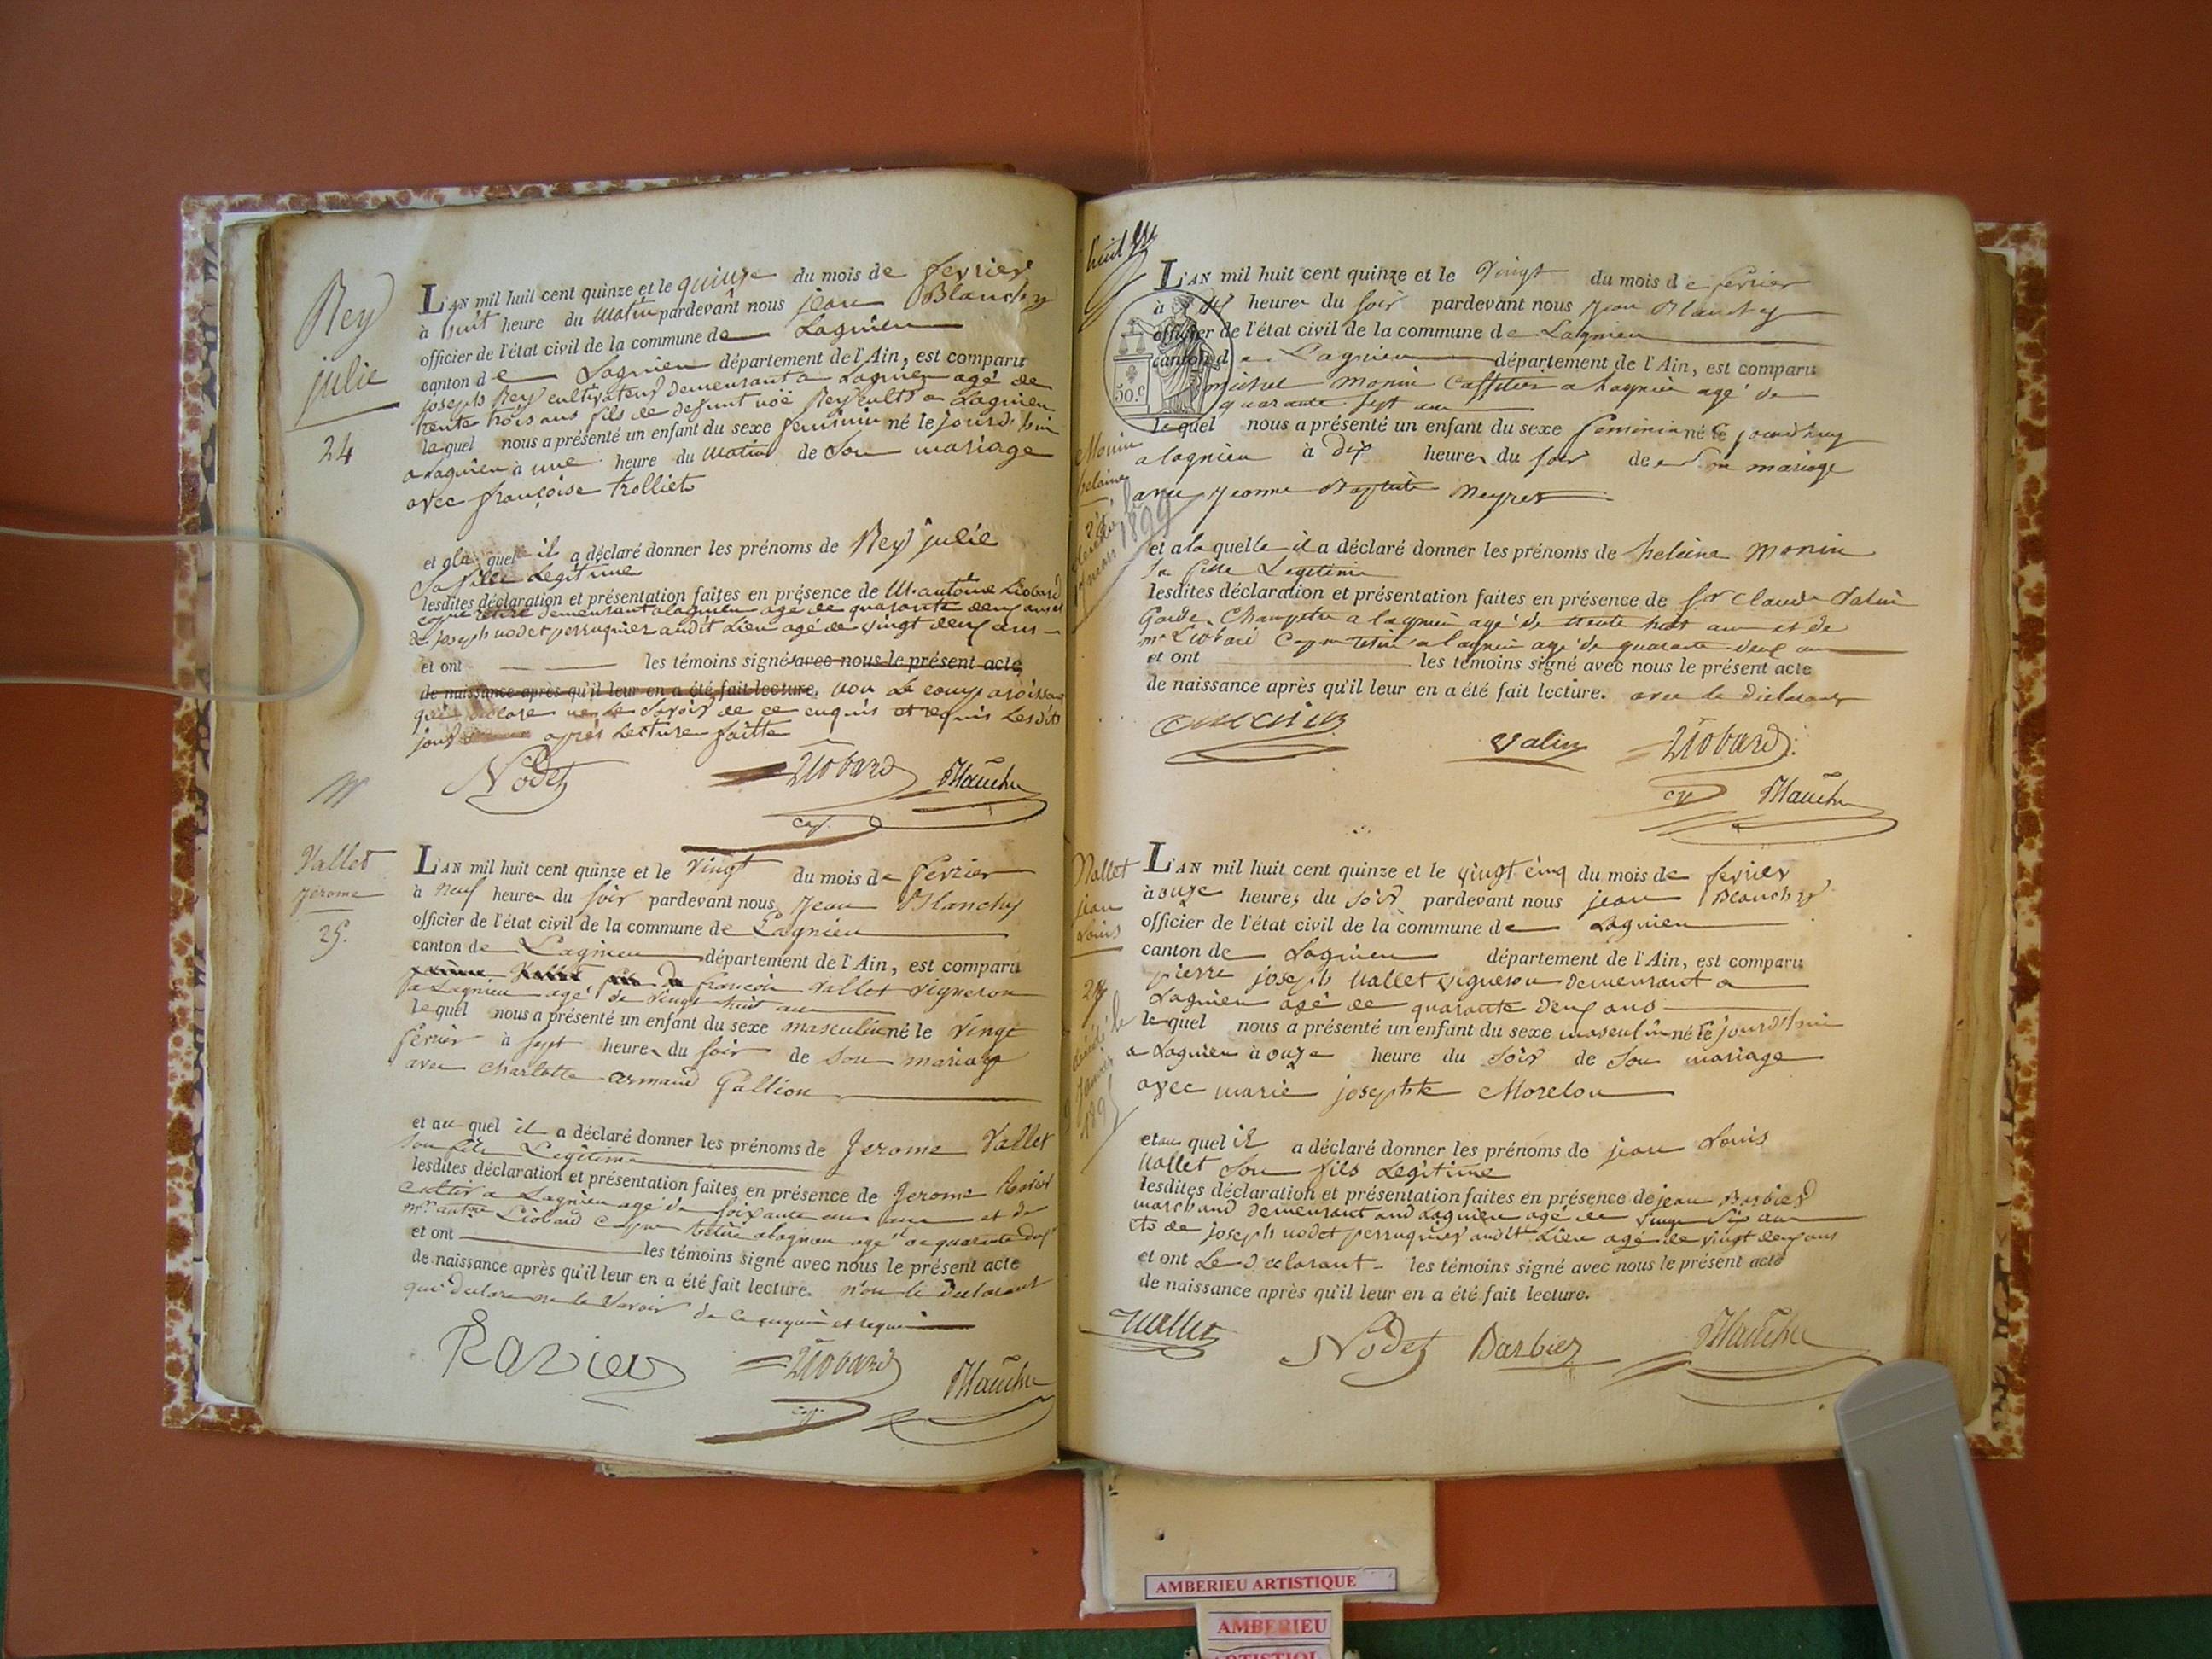 Rey
julie
24
L'AN mil huit cent quinze et le quinze du mois de fevrier
à huit heure du matin pardevant nous jean Blanchy
officier de l'état civil de la commune de Lagnieu
canton de Lagnieu département de l'Ain, est comparu
joseph Rey cultivateur demeurant a Lagnieu agé de
trente trois ans fils de defunt noé Rey cultr a Lagnieu
lequel nous a présenté un enfant du sexe feminin né le jourd'hui
a Lagnieu à une heure du matin de Son mariage
avec françoise trolliet
et a la quelle il a déclaré donner les prénoms de Rey julie
Sa fille Legitime
lesdites déclaration et présentation faites en présence de M. antoine Liobard
demeurant a lagnieu agé de quarante deux ans et
de joseph nodet perruquier audit Lieu agé de vingt deux ans
et ont les témoins signé avec nous le présent acte
de naissance après qu'il leur en a été fait lecture. non le comparoissant
qui declare ne le savoir de ce enquis et requis Lesdits
jour après Lecture faitte
Nodet Liobard Blanchy
cap.
Vallet
Jerome
25.
L'AN mil huit cent quinze et le Vingt du mois de fevrier
à neuf heure du soir pardevant nous Jean Blanchy
officier de l'état civil de la commune de Lagnieu
canton de Lagnieu département de l'Ain, est comparu
francois Vallet vigneron
a Lagnieu agé de vingt huit ans
lequel nous a présenté un enfant du sexe masculin né le vingt
fevrier à sept heure du soir de son mariage
avec charlotte armand Gallion
et au quel il a déclaré donner les prénoms de Jerome Vallet
son fils Legitime
lesdites déclaration et présentation faites en présence de Jerome
cultivr a Lagnieu agé de soixante ans et de
mr antne Liobard capne retiré a lagnieu agé de quarante deux
et ont les témoins signé avec nous le présent acte
de naissance après qu'il leur en a été fait lecture. non le declarant
qui declare ne le savoir de ce enquis et requis
Ravier Liobard Blanchy
cap.
L'AN mil huit cent quinze et le Vingt du mois de fevrier
à heure du soir pardevant nous Jean Blanchy
officier de l'état civil de la commune de Lagnieu
canton de Lagnieu département de l'Ain, est comparu
50.c
michel monin caffetier a Lagnieu agé de
quarante sept ans
lequel nous a présenté un enfant du sexe feminin né le jourdhuy
Monin
helaine
a lagnieu à dix heure du soir de Son mariage
avec Jeanne Baptiste neyret
1899
et a la quelle il a déclaré donner les prénoms de heleine monin
sa fille Legitime
lesdites déclaration et présentation faites en présence de Sr Claude Valin
Garde Champetre a lagnieu agé de trente huit ans et de
mr Liobard Capne retiré a lagnieu agé de quarante deux ans
et ont les témoins signé avec nous le présent acte
de naissance après qu'il leur en a été fait lecture. avec le declarant
Valin Liobard
Blanchy
Vallet
jean
Louis
27
L'AN mil huit cent quinze et le vingt cinq du mois de fevrier
à onze heures du soir pardevant nous jean Blanchy
officier de l'état civil de la commune de Lagnieu
canton de Lagnieu département de l'Ain, est comparu
pierre joseph Vallet vigneron demeurant a
Lagnieu agé de quarante deux ans
lequel nous a présenté un enfant du sexe masculin né le jourd'hui
a Lagnieu à onze heure du soir de Son mariage
avec marie josephte Morelon
et au quel il a déclaré donner les prénoms de jean Louis
Vallet Son fils Legitime
lesdites déclaration et présentation faites en présence de jean Barbier
marchand demeurant aud Lagnieu agé de vingt six ans
et de joseph nodet perruquier audit Lieu agé de vingt deux ans
et ont Le declarant les témoins signé avec nous le présent acte
de naissance après qu'il leur en a été fait lecture.
Vallet Nodet Barbier Blanchy
AMBERIEU ARTISTIQUE
AMBERIEU
ARTISTIQUE